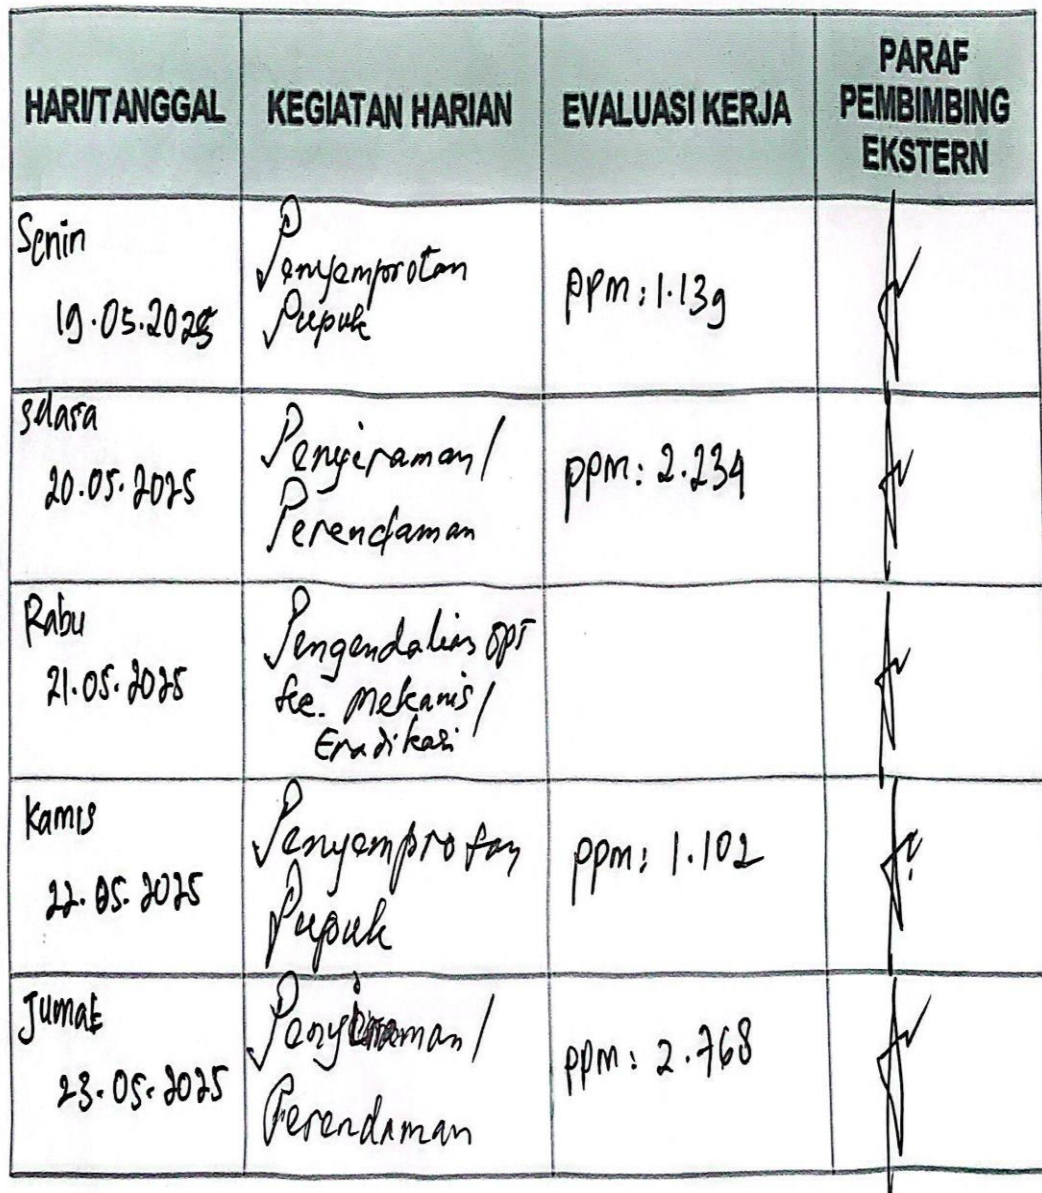 HARI/TANGGAL KEGIATAN HARIAN EVALUASI KERJA PARAF PEMBIMBING EKSTERN
Senin
19.05.2025
Penyemprotan
Pupuk
ppm: 1.139
Selasa
20.05.2025
Penyiraman /
Perendaman
ppm: 2.234
Rabu
21.05.2025
Pengendalian OPT
Mekanis /
Eradikasi
Kamis
22.05.2025
Penyemprotan
Pupuk
ppm: 1.102
Jumat
23.05.2025
Penyiraman /
Perendaman
ppm: 2.768